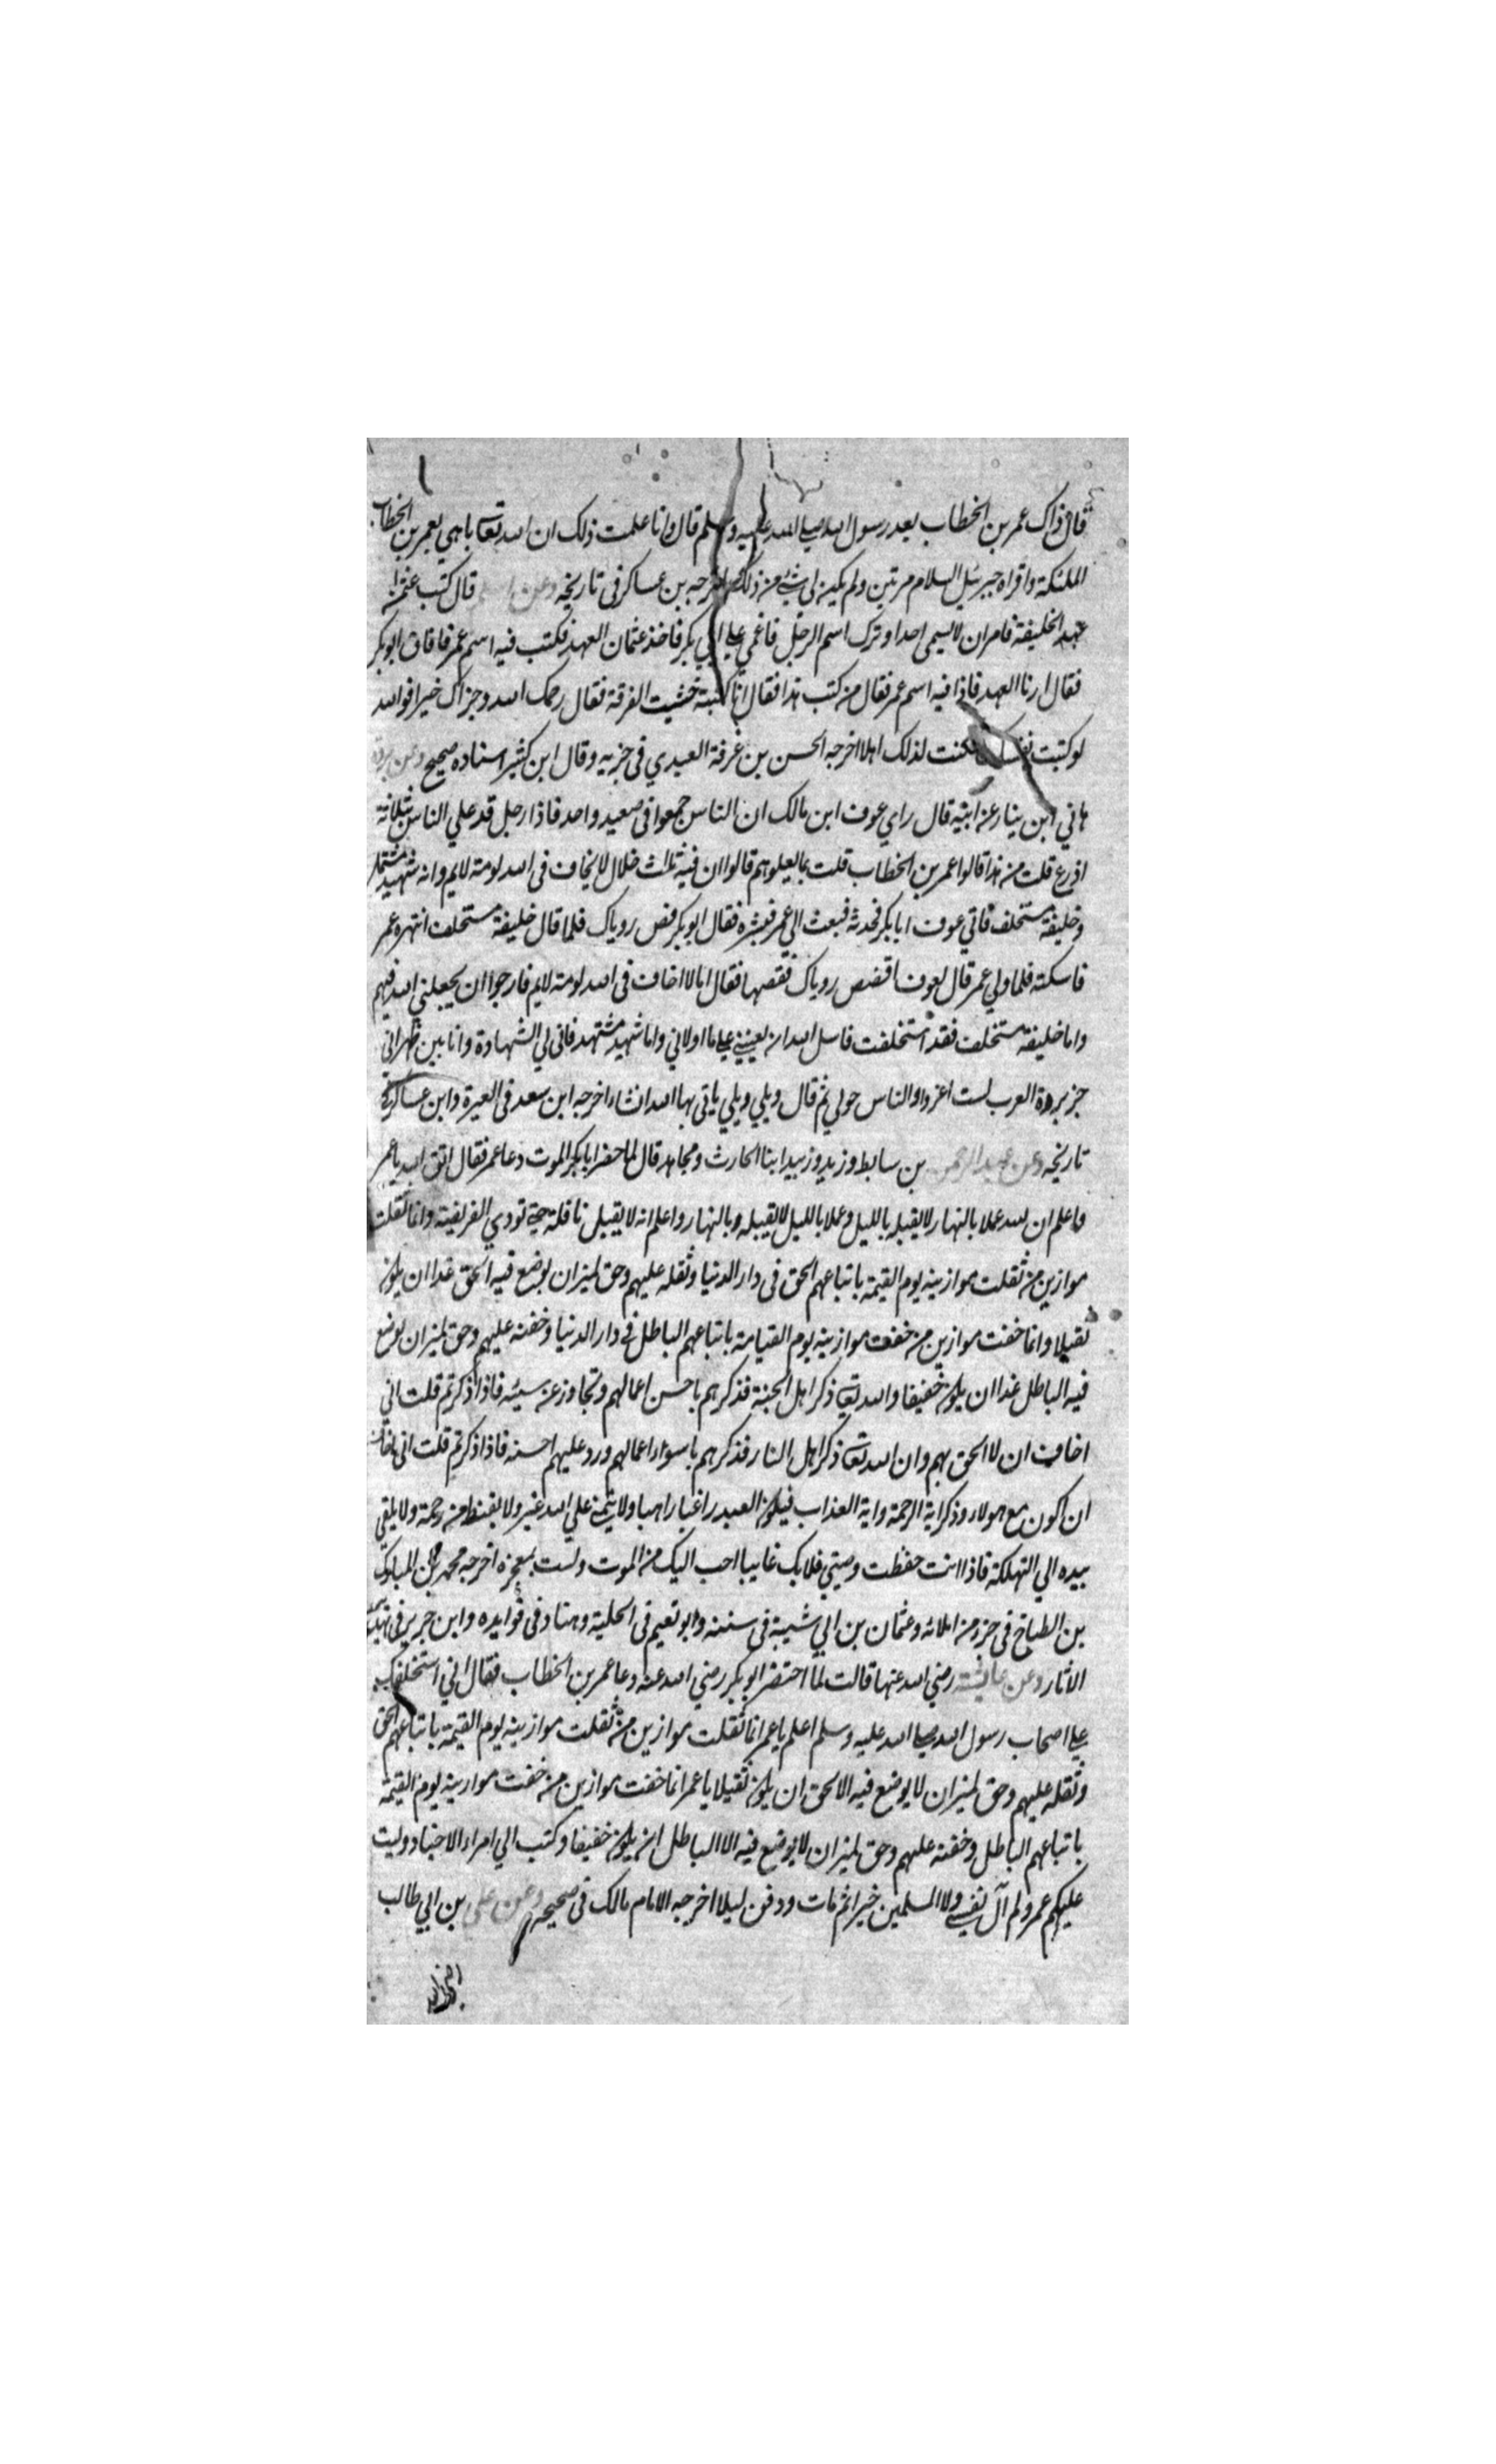 قال ذاك عمر بن الخطاب بعد رسول الله صلي الله عليه وسلم قال وانا علمت ذلك ان الله تعا باهي بعمر بن الخطاب
الملئكة واقراه جبرئيل السلام مرتين ولم يكن لي شئ من ذلك اخرجه بن عساكر في تاريخه وعن اسلم قال كتب عثمان
عهد الخليفة فامر ان لا يسمي احدا وترك اسم الرجل فاغمي علي ابي بكر فاخذ عثمان العهد فكتب فيه اسم عمر فافاق ابو بكر
فقال ارنا العهد فاذا فيه اسم عمر فقال من كتب هذا فقال انا كتبته خشيت الفرقة فقال رحمك الله وجزاك خيرا فوالله
لو كتبت نفسك لكنت لذلك اهلا اخرجه الحسن بن عرفة العبدي في جزيه وقال ابن كثير اسناده صحيح وعن بردة
هاني ابن ينار عن ابيه قال راي عوف ابن مالك ان الناس جمعوا في صعيد واحد فاذا رجل قد علي الناس بثلاثة
اذرع قلت من هذا قالوا عمر بن الخطاب قلت بما يعلوهم قالوا ان فيه ثلاث خلال لا يخاف في الله لومة لايم وانه شهيد
وخليفة مستخلف فاتي عوف ابا بكر فحدثه فبعث الي عمر فبشره فقال ابو بكر قص روياك فلما قال خليفة مستخلف انتهره عمر
فاسكته فلما ولي عمر قال لعوف اقصص روياك فقصها فقال اما لا اخاف في الله لومة لايم فارجوا ان يجعلني الله فيهم
واما خليفة مستخلف فقد استخلفت فاسل الله ان يعينني علي ما اولاني واما شهيد مشتهد فاني لي الشهادة وانا بين ظهراني
جزيرة العرب لست اغزوا والناس حولي ثم قال ويلي ويلي ياتي بها الله انشاء اخرجه ابن سعد في العيرة وابن عساكر في
تاريخه وعن عبد الرحمن بن سابط وزيد وزبيد ابنا الحارث ومجاهد قال لما حضر ابا بكر الموت دعا عمر فقال اتق الله يا عمر
واعلم ان لله عملا بالنهار لا يقبله بالليل وعملا بالليل لا يقبله وبالنهار واعلم انه لا يقبل نافلة حتي تودي الفريضة وانما ثقلت
موازين من ثقلت موازينه يوم القيمة باتباعهم الحق في دار الدنيا وثقله عليهم وحق لميزان يوضع فيه الحق غدا ان يكون
ثقيلا وانما خفت موازين من خفت موازينه يوم القيامة باتباعهم الباطل في دار الدنيا وخفته عليهم وحق لميزان يوضع
فيه الباطل غدا ان يكون خفيفا والله تعا ذكر اهل الجنة فذكرهم باحسن اعمالهم وتجاوز عن سيئه فاذا ذكرتم قلت اني
اخاف ان لا الحق بهم وان الله تعا ذكر اهل النار فذكرهم باسواء اعمالهم ورد عليهم احسنه فاذا ذكرتم قلت اني اخاف
ان اكون مع هولاء وذكر اية الرحمة واية العذاب فيكون العبد راغبا راهبا ولا يتمني علي الله غير ولا يقنط من رحمة ولا يلقي
بيده الي التهلكة فاذا انت حفظت وصيتي فلا يك غايبا احب اليك من الموت ولست بمعجزه اخرجه محمد بن المبارك
بن الطباخ في جزء من املائه وعثمان بن ابي شيبة في سننه وابو نعيم في الحلية وهناد في فوايده وابن جرير في تهذيب
الاثار وعن عايشة رضي الله عنها قالت لما احتضر ابو بكر رضي الله عنه دعا عمر بن الخطاب فقال اني استخلفك
علي اصحاب رسول الله صلي الله عليه وسلم اعلم يا عمر انما ثقلت موازين من ثقلت موازينه يوم القيمة باتباعهم الحق
وثقله عليهم وحق لميزان لا يوضع فيه الا الحق ان يكون ثقيلا يا عمر انما خفت موازين من خفت موازينه يوم القيمة
باتباعهم الباطل وخفته عليهم وحق لميزان لا يوضع فيه الا الباطل ان يكون خفيفا وكتب الي امراء الاجناد وليت
عليكم عمر ولم آل نفسي ولا المسلمين خيرا ثم مات ودفن ليلا اخرجه الامام مالك في صحيحه وعن علي بن ابي طالب